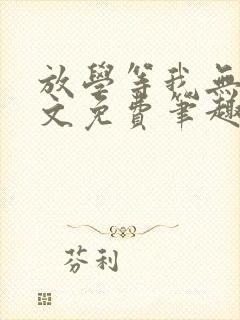 放學等我無
文免費筆趣
芬利